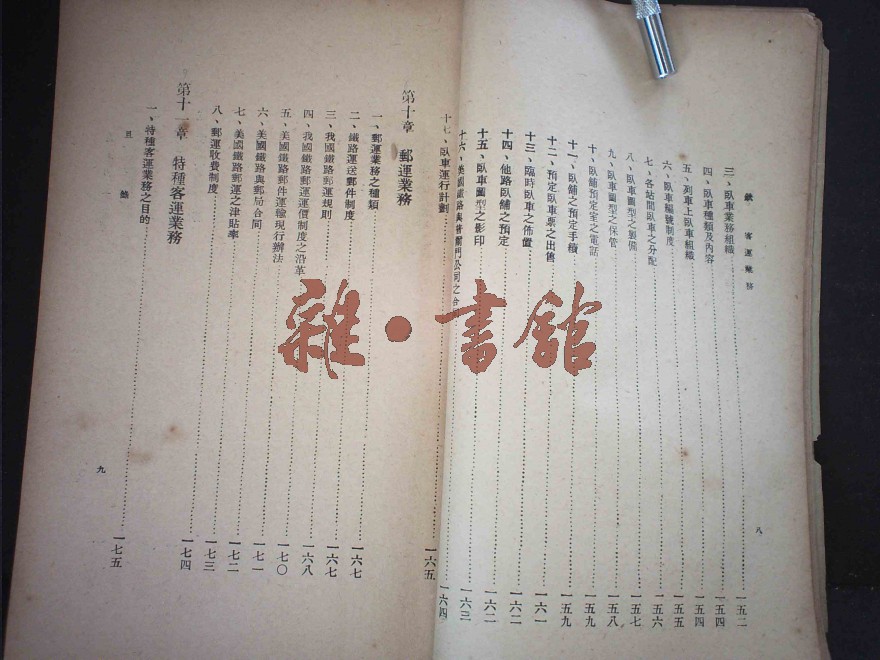 客運業務
三、臥車業務組織 一五二
四、臥車種類及內容 一五四
五、列車上臥車組織 一五五
六、臥車編號制度 一五六
七、各站間臥車之分配 一五七
八、臥車圖型之製備 一五八
九、臥車圖型之保管 一五九
十、臥舖預定室之電話 一五九
十一、臥舖之預定手續 一六一
十二、預定臥車票之出售
十三、臨時臥車之佈置 一六二
十四、他路臥舖之預定 一六二
十五、臥車圖型之影印 一六三
十六、美國鐵路與普爾門公司之合 一六四
十七、臥車運行計劃 一六五
八
第十章 郵運業務
一、郵運業務之種類 一六七
二、鐵路運送郵件制度 一六七
三、我國鐵路郵運規則 一六八
四、我國鐵路郵運運價制度之沿革
五、美國鐵路郵件運輸現行辦法 一七〇
六、美國鐵路與郵局合同 一七一
七、美國鐵路郵運之津貼率 一七二
八、郵運收費制度 一七三
第十一章 特種客運業務 一七四
一、特種客運業務之目的 一七五
目錄
九
雜·書館